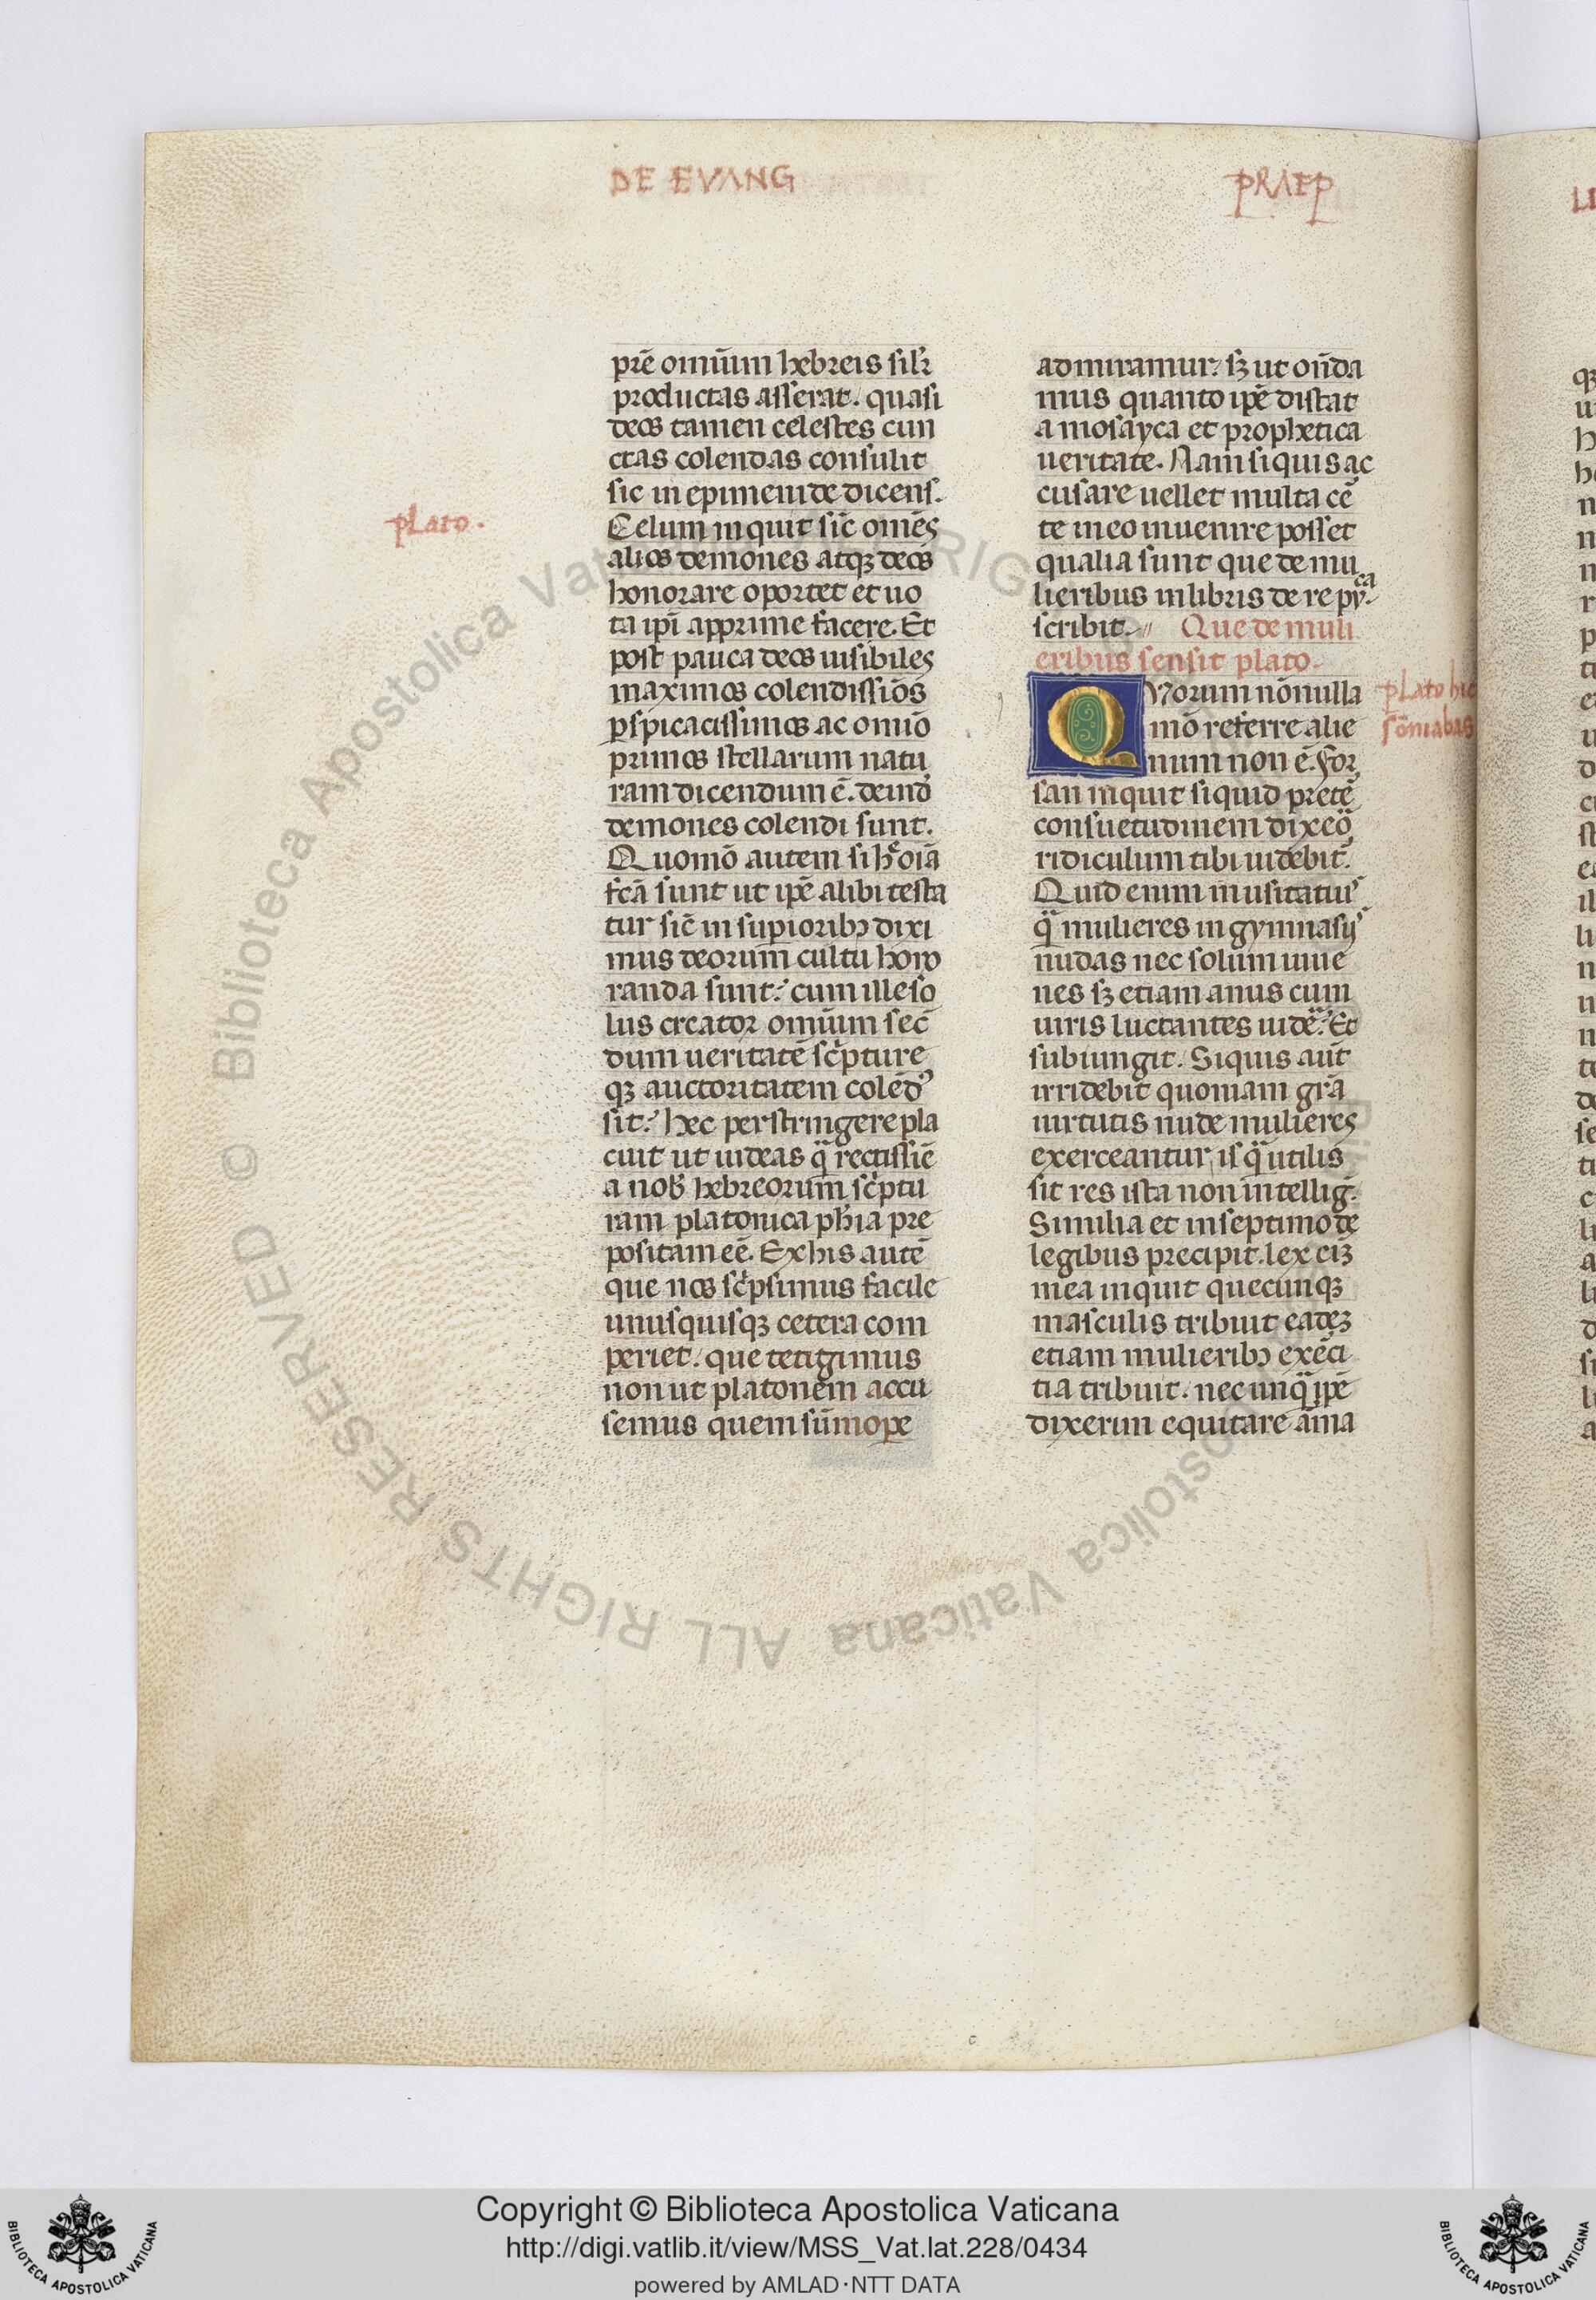 DE EVANG
PRAEP
prē omīum hebreis silr̄
productas asserat. quasi
deos tamen celestes cun
ctas colendas consulit
sic in epimenide dicens.
Celum inquit sic̄ omēs
alios demones atqꝫ deos
honorare oportet et uo
ta ip̄i apprime facere. Et
post pauca deos uisibiles
maximos colendissiōs
ꝑspicacissimos ac omīo
primos stellarum natu
ram dicendum ē. deīnd
demones colendi sunt.
Quomō autem si hͨ oīa
fcā sunt ut ip̄e alibi testa
tur sic̄ in supioribꝫ dixi
mus deorum cultu hono
randa sunt: cum ille so
lus creator omīum sec̄
dum ueritatē scͥpture
qꝫ auctoritatem colēdꝰ
sit: hec perstringere pla
cuit ut uideas qͣ rectissīe
a nob̄ hebreorum scͥptu
ram platonica ph̄ia pre
positam eē. Ex his autē
que nos scͥpsimus facile
unusquisqꝫ cetera com
periet. que tetigimus
non ut platonem accu
semus quem sūmope
plato.
admiramur: sꝫ ut on̄da
mus quanto ip̄e distat
a mosayca et prophetica
ueritate. Nam siquis ac
cusare uellet multa cē
te in eo inuenire posset
qualia sunt que de mu
lieribus in libris de re py.ca
scribit. Que de muli
eribus sensit plato.
Quorum nōnulla
mō referre alie
num non ē. For
san inquit siquid pretē
consuetudinem dixeō
ridiculum tibi uidebit̄.
Quid enim inusitatiuꝰ
qͣ mulieres in gymnasijˢ
nudas nec solum iuue
nes sꝫ etiam anus cum
uiris luctantes uidēͤ: Et
subiungit. Siquis aūt
irridebit quoniam grā
uirtutis nude mulieres
exerceantur is qͣ utilis
sit res ista non intelliḡ.
Similia et in septimo de
legibus precipit. lex eiꝫ
mea inquit quecunqꝫ
masculis tribuit eadeꝫ
etiam mulieribꝫ exēci
tia tribuit. nec unqͣ ip̄e
dixerim equitare aīma
plato hic
sōniabas
Copyright © Biblioteca Apostolica Vaticana
http://digi.vatlib.it/view/MSS_Vat.lat.228/0434
powered by AMLAD·NTT DATA
BIBLIOTECA APOSTOLICA VATICANA
BIBLIOTECA APOSTOLICA VATICANA